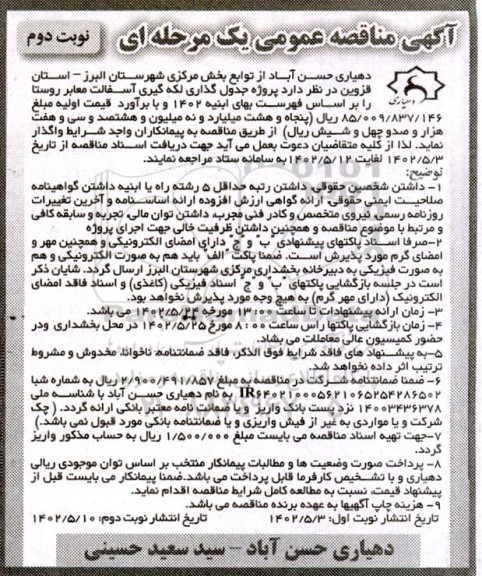 آگهی مناقصه عمومی یک مرحله ای
نوبت دوم
دهیاری حسن آباد از توابع بخش مرکزی شهرستان البرز – استان
قزوین در نظر دارد پروژه جدول گذاری لکه گیری آسفالت معابر روستا
را بر اساس فهرست بهای ابنیه ۱۴۰۲ و با برآورد قیمت اولیه مبلغ
۸۵/۰۰۹/۸۳۷/۱۴۶ ریال (پنجاه و هشت میلیارد و نه میلیون و هشتصد و سی و هفت
هزار و صدو چهل و شیش ریال) از طریق مناقصه به پیمانکاران واجد شرایط واگذار
نماید. لذا از کلیه متقاضیان دعوت بعمل می آید جهت دریافت اسناد مناقصه از تاریخ
۱۴۰۲/۵/۳ لغایت ۱۴۰۲/۵/۱۲ به سامانه ستاد مراجعه نمایند.
توضیح:
۱- داشتن شخصین حقوقی، داشتن رتبه حداقل ۵ رشته راه یا ابنیه داشتن گواهینامه
صلاحیت ایمنی حقوقی، ارائه گواهی ارزش افزوده ارائه اساسنامه و آخرین تغییرات
روزنامه رسمی، نیروی متخصص و کادر فنی مجرب، داشتن توان مالی، تجربه و سابقه کافی
و مرتبط با موضوع مناقصه و همچنین داشتن ظرفیت خالی جهت اجرای پروژه
۲-صرفا اسناد پاکتهای پیشنهادی "ب" و "ج" دارای امضای الکترونیکی و همچنین مهر و
امضای گرم مورد پذیرش است. ضمنا پاکت "الف" باید هم به صورت الکترونیکی و هم
به صورت فیزیکی به دبیرخانه بخشداری مرکزی شهرستان البرز ارسال گردد. شایان ذکر
است در جلسه بازگشایی پاکتهای "ب" و "ج" اسناد فیزیکی (کاغذی) و اسناد فاقد امضای
الکترونیک (دارای مهر گرم) به هیچ وجه مورد پذیرش نخواهد بود.
۳- زمان ارائه پیشنهادات تا ساعت ۱۳:۰۰ مورخه ۱۴۰۲/۵/۲۴ می باشد.
۴- زمان بازگشایی پاکتها راس ساعت ۸:۰۰ مورخ ۱۴۰۲/۵/۲۵ در محل بخشداری ودر
حضور کمیسیون عالی معاملات می باشد.
۵-به پیشنهاد های فاقد شرایط فوق الذکر، فاقد ضمانتنامه، ناخوانا، مخدوش و مشروط
ترتیب اثر داده نخواهد شد.
۶- ضمنا ضمانتنامه شرکت در مناقصه به مبلغ ۲/۹۰۰/۴۹۱/۸۵۷ ریال به شماره شبا
IR۶۴۰۲۱۰۰۰۰۵۶۲۱۰۶۵۲۵۴۲۸۶۵۰۲ به نام دهیاری حسن آباد با شناسه ملی
۱۴۰۰۳۴۳۶۳۷۸ نزد پست بانک واریز و یا ضمانت نامه معتبر بانکی ارائه گردد. ( چک
شرکت و یا مواردی به غیر از فیش واریزی و یا ضمانتنامه بانکی مورد قبول نمی باشد.)
۷-جهت تهیه اسناد مناقصه می بایست مبلغ ۱/۵۰۰/۰۰۰ ریال به حساب مذکور واریز
گردد.
۸- پرداخت صورت وضعیت ها و مطالبات پیمانکار منتخب بر اساس توان موجودی ریالی
دهیاری و با تشخیص کارفرما قابل پرداخت می باشد.ضمنا پیمانکار می بایست قبل از
پیشنهاد قیمت، نسبت به مطالعه کامل شرایط مناقصه اقدام نماید.
۹- هزینه چاپ آگهیها به عهده برنده مناقصه می باشد.
تاریخ انتشار نوبت اول: ۱۴۰۲/۵/۳ تاریخ انتشار نوبت دوم: ۱۴۰۲/۵/۱۰
دهیاری حسن آباد – سید سعید حسینی